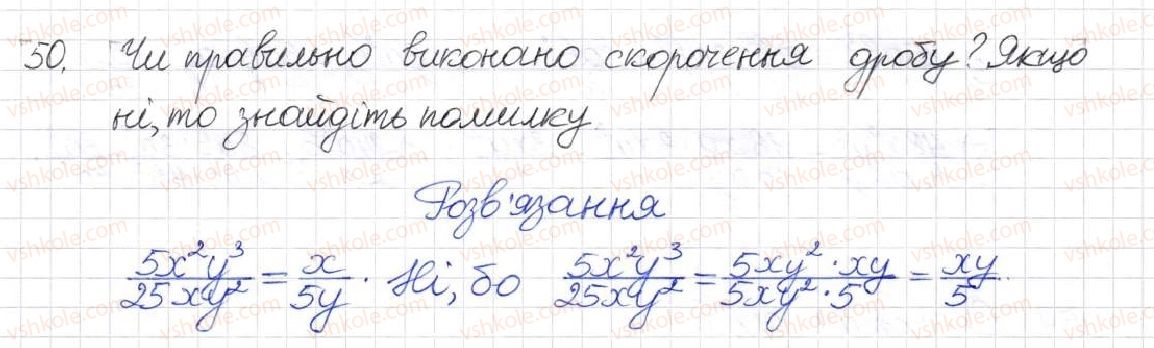 50. Чи правильно виконано скорочення дробу? Якщо
ні, то знайдіть помилку.
Розв'язання
5x²y³/25xy² = x/5y. Ні, бо 5x²y³/25xy² = 5xy²·xy/5xy²·5 = xy/5.